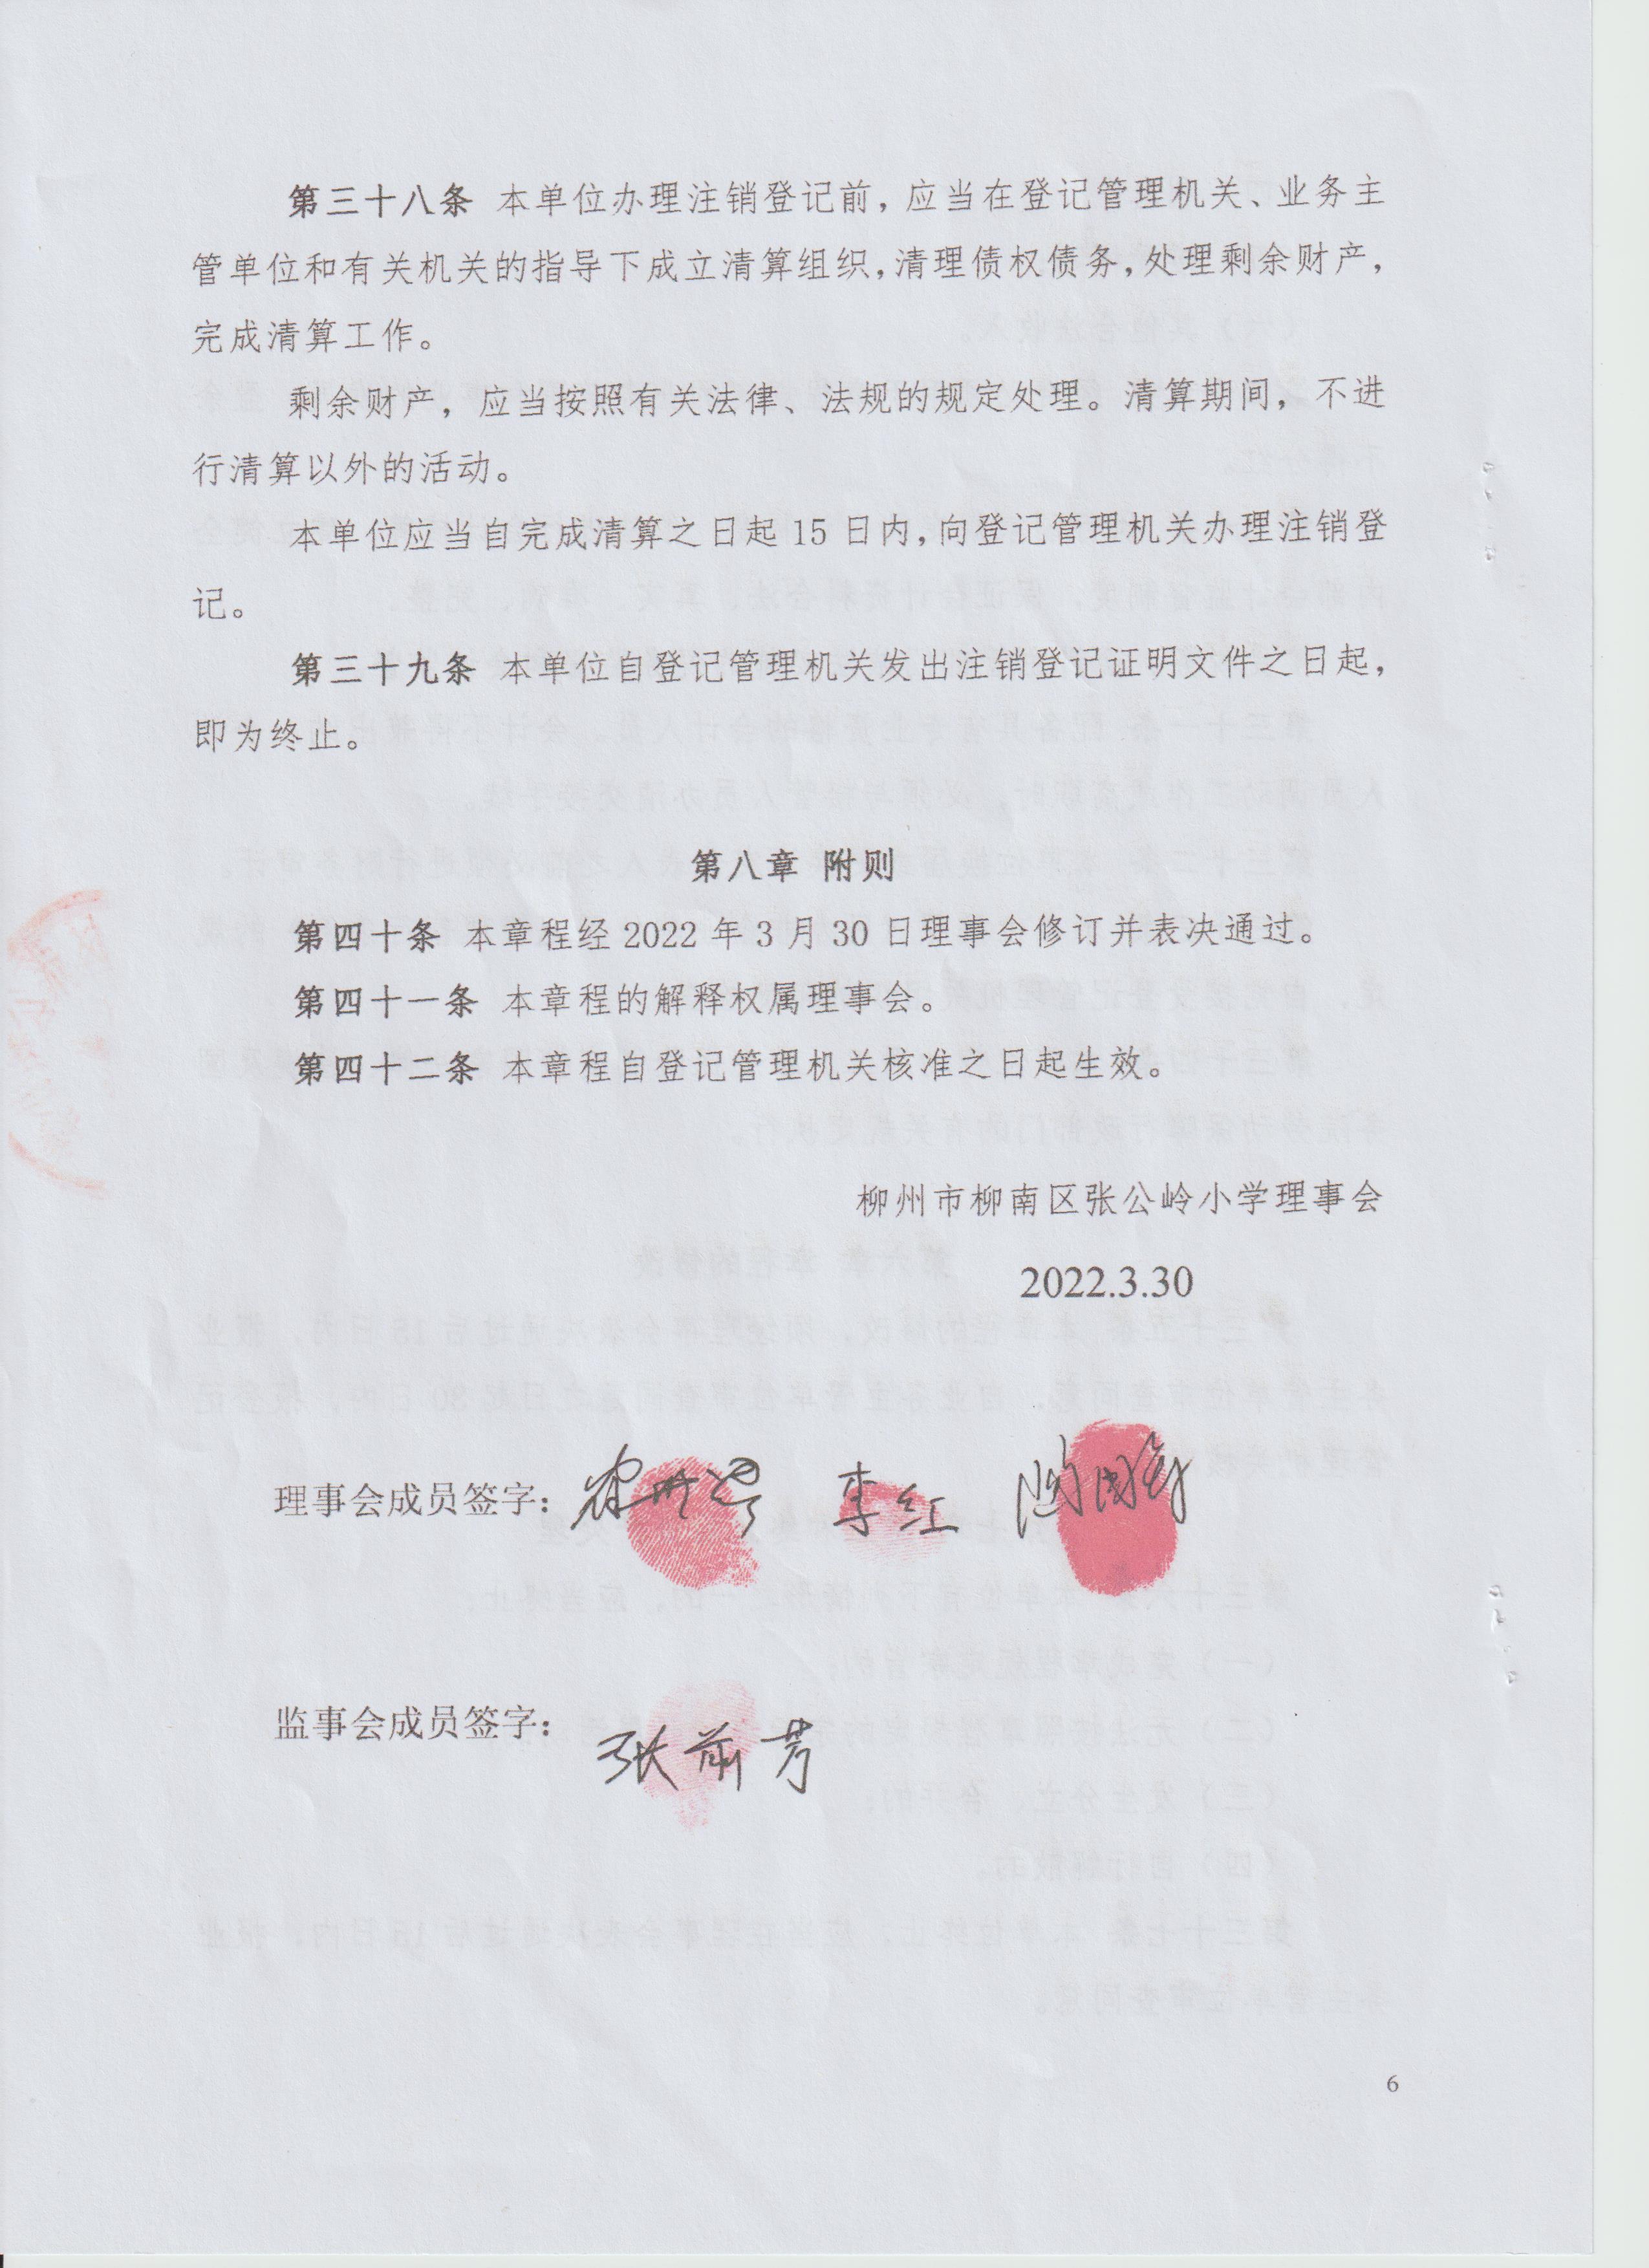 第三十八条 本单位办理注销登记前，应当在登记管理机关、业务主
管单位和有关机关的指导下成立清算组织，清理债权债务，处理剩余财产，
完成清算工作。
剩余财产，应当按照有关法律、法规的规定处理。清算期间，不进
行清算以外的活动。
本单位应当自完成清算之日起 15 日内，向登记管理机关办理注销登
记。
第三十九条 本单位自登记管理机关发出注销登记证明文件之日起，
即为终止。
第八章 附则
第四十条 本章程经 2022 年 3 月 30 日理事会修订并表决通过。
第四十一条 本章程的解释权属理事会。
第四十二条 本章程自登记管理机关核准之日起生效。
柳州市柳南区张公岭小学理事会
2022.3.30
理事会成员签字： 李红
监事会成员签字： 张前芳
6